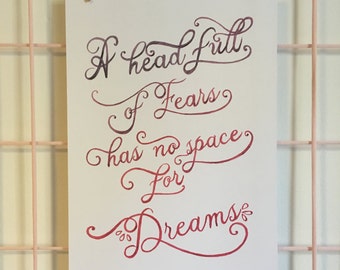 A head full
of Fears
has no space
for
Dreams